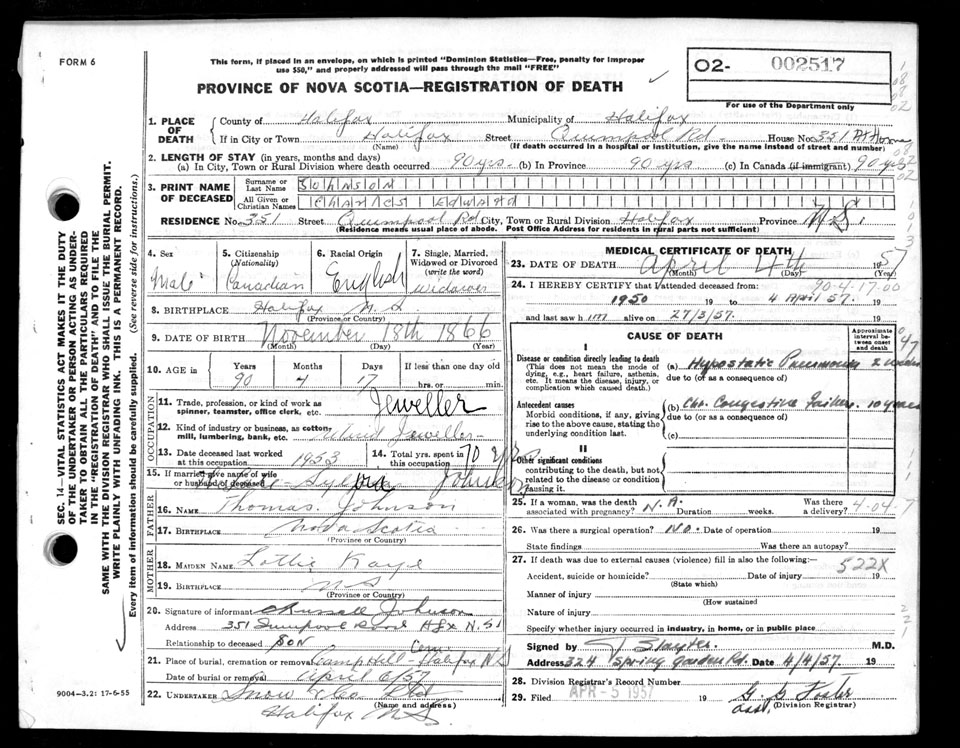 FORM 6
This form, if placed in an envelope, on which is printed "Dominion Statistics—Free, penalty for improper
use $50," and properly addressed will pass through the mail "FREE"
PROVINCE OF NOVA SCOTIA—REGISTRATION OF DEATH
O2- 002517
For use of the Department only
1. PLACE OF DEATH County of Halifax Municipality of Halifax
If in City or Town Halifax Street Quinpool Rd House No. 351
(Name) (If death occurred in a hospital or institution, give name instead of street and number)
2. LENGTH OF STAY (in years, months and days)
(a) In City, Town or Rural Division where death occurred 90 yrs (b) In Province 90 yrs (c) In Canada (if immigrant) 90 yrs
3. PRINT NAME OF DECEASED Surname or Last Name JOHNSON
All Given or Christian Names CHARLES EDWARD
RESIDENCE No. 351 Street Quinpool Rd City, Town or Rural Division Halifax Province N.S.
(Residence means usual place of abode. Post Office Address for residents in rural parts not sufficient)
SEC. 14—VITAL STATISTICS ACT MAKES IT THE DUTY
OF THE UNDERTAKER OR PERSON ACTING AS UNDER-
TAKER TO OBTAIN ALL THE PARTICULARS REQUIRED
IN THE "REGISTRATION OF DEATH" AND TO FILE THE
SAME WITH THE DIVISION REGISTRAR WHO SHALL ISSUE THE BURIAL PERMIT.
WRITE PLAINLY WITH UNFADING INK. THIS IS A PERMANENT RECORD.
Every item of information should be carefully supplied. (See reverse side for instructions.)
4. Sex Male
5. Citizenship (Nationality) Canadian
6. Racial Origin English
7. Single, Married, Widowed or Divorced (write the word) Widower
8. BIRTHPLACE Halifax N.S.
(Province or Country)
9. DATE OF BIRTH November 18th 1866
(Month) (Day) (Year)
10. AGE in Years 90 Months 4 Days 17 If less than one day old hrs. or min.
OCCUPATION
11. Trade, profession, or kind of work as spinner, teamster, office clerk, etc. Jeweller
12. Kind of industry or business, as cotton mill, lumbering, bank, etc. Retired Jeweller
13. Date deceased last worked at this occupation 1953
14. Total yrs. spent in this occupation 70 yrs
15. If married give name of wife or husband of deceased Johnson
FATHER
16. NAME Thomas Johnson
17. BIRTHPLACE Nova Scotia
(Province or Country)
MOTHER
18. MAIDEN NAME Lottie Kaye
19. BIRTHPLACE N.S.
(Province or Country)
20. Signature of informant Russell Johnson
Address 351 Quinpool Road Hfx N.S.
Relationship to deceased SON
21. Place of burial, cremation or removal Camphill Cem. Halifax N.S.
Date of burial or removal April 6/57
22. UNDERTAKER Snow & Co Ltd
(Name and address)
Halifax N.S.
9004-3.2: 17-6-55
MEDICAL CERTIFICATE OF DEATH
23. DATE OF DEATH April 4th 1957
(Month) (Day) (Year)
90-4-17-00
24. I HEREBY CERTIFY that I attended deceased from:
1950 19 to 4 April 57. 19
and last saw him alive on 27/3/57. 19
CAUSE OF DEATH
Approximate interval between onset and death
I
Disease or condition directly leading to death
(This does not mean the mode of dying, e.g., heart failure, asthenia, etc. It means the disease, injury, or complication which caused death.)
(a) Hypostatic Pneumonia 2 weeks
due to (or as a consequence of)
Antecedent causes
Morbid conditions, if any, giving rise to the above cause, stating the underlying condition last.
(b) Chr. Congestive Failure. 10 years
due to (or as a consequence of)
(c)
II
Other significant conditions
contributing to the death, but not related to the disease or condition causing it.
25. If a woman, was the death associated with pregnancy? N.A. Duration weeks. Was there a delivery?
4-04-7
26. Was there a surgical operation? No. Date of operation 19
State findings Was there an autopsy?
27. If death was due to external causes (violence) fill in also the following:—
522X
Accident, suicide or homicide? Date of injury 19
(State which)
Manner of injury
(How sustained
Nature of injury
Specify whether injury occurred in industry, in home, or in public place
Signed by J Slayter. M.D.
Address 324 Spring Garden Rd. Date 4/4/57. 19
28. Division Registrar's Record Number
29. Filed APR - 5 1957 19 G. S. Foster
Asst. (Division Registrar)